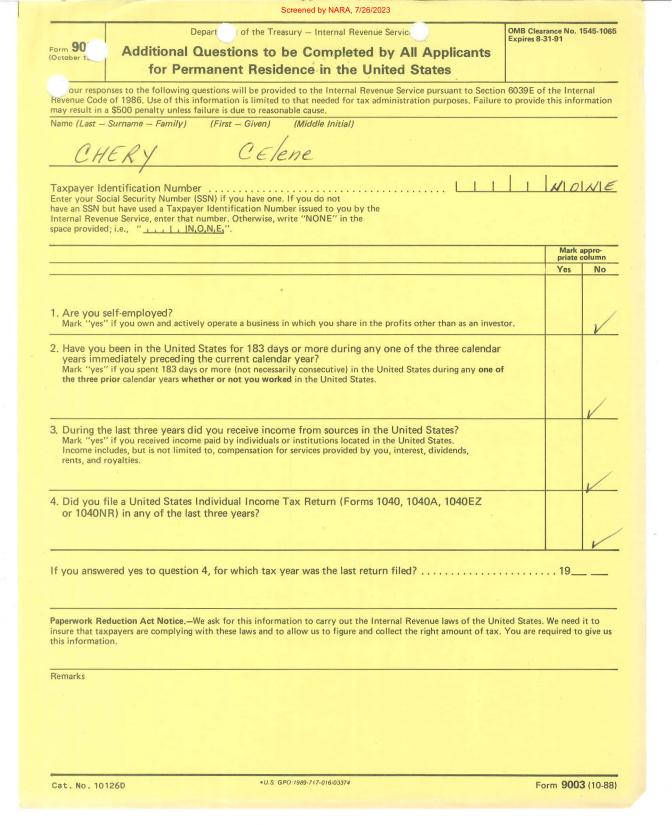 Screened by NARA, 7/26/2023
Depart of the Treasury — Internal Revenue Servic
OMB Clearance No. 1545-1065
Expires 8-31-91
Form 90
(October 1
Additional Questions to be Completed by All Applicants
for Permanent Residence in the United States
our responses to the following questions will be provided to the Internal Revenue Service pursuant to Section 6039E of the Internal
Revenue Code of 1986. Use of this information is limited to that needed for tax administration purposes. Failure to provide this information
may result in a $500 penalty unless failure is due to reasonable cause.
Name (Last — Surname — Family) (First — Given) (Middle Initial)
CHERY Celene
Taxpayer Identification Number ........................................ NONE
Enter your Social Security Number (SSN) if you have one. If you do not
have an SSN but have used a Taxpayer Identification Number issued to you by the
Internal Revenue Service, enter that number. Otherwise, write "NONE" in the
space provided; i.e., "NONE".
Mark appro-
priate column
Yes No
1. Are you self-employed?
Mark "yes" if you own and actively operate a business in which you share in the profits other than as an investor.
2. Have you been in the United States for 183 days or more during any one of the three calendar
years immediately preceding the current calendar year?
Mark "yes" if you spent 183 days or more (not necessarily consecutive) in the United States during any one of
the three prior calendar years whether or not you worked in the United States.
3. During the last three years did you receive income from sources in the United States?
Mark "yes" if you received income paid by individuals or institutions located in the United States.
Income includes, but is not limited to, compensation for services provided by you, interest, dividends,
rents, and royalties.
4. Did you file a United States Individual Income Tax Return (Forms 1040, 1040A, 1040EZ
or 1040NR) in any of the last three years?
If you answered yes to question 4, for which tax year was the last return filed? ........................ 19__ __
Paperwork Reduction Act Notice.—We ask for this information to carry out the Internal Revenue laws of the United States. We need it to
insure that taxpayers are complying with these laws and to allow us to figure and collect the right amount of tax. You are required to give us
this information.
Remarks
Cat. No. 10126D
*U.S. GPO:1989-717-016/03374
Form 9003 (10-88)